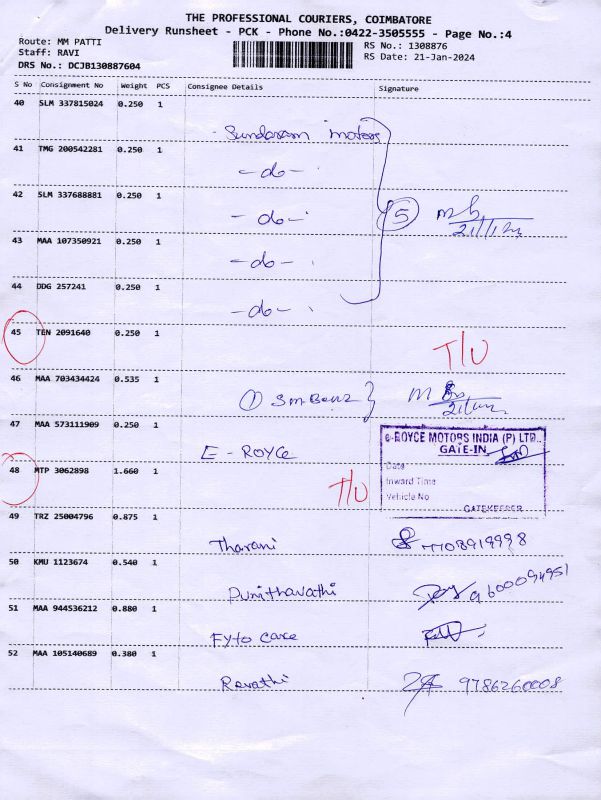 THE PROFESSIONAL COURIERS, COIMBATORE
Delivery Runsheet - PCK - Phone No.:0422-3505555 - Page No.:4
Route: MM PATTI
Staff: RAVI
DRS No.: DCJB130887604
RS No.: 1308876
RS Date: 21-Jan-2024
S No Consignment No Weight PCS Consignee Details Signature
40 SLM 337815024 0.250 1
Sundaram motors
41 TMG 200542281 0.250 1
-do-
42 SLM 337688881 0.250 1
-do- 5
43 MAA 107350921 0.250 1
-do-
44 DDG 257241 0.250 1
-do-
45 TEN 2091640 0.250 1
T/U
46 MAA 703434424 0.535 1
1 Sm Benz
47 MAA 573111909 0.250 1
E-ROYCE
e-ROYCE MOTORS INDIA (P) LTD.
GATE-IN
Date
Inward Time
Vehicle No
GATEKEEPER
48 MTP 3062898 1.660 1
T/U
49 TRZ 25004796 0.875 1
Tharani 7708919998
50 KMU 1123674 0.540 1
Punithavathi 9600094951
51 MAA 944536212 0.880 1
Fyto care
52 MAA 105140689 0.380 1
Revathi 9786260008